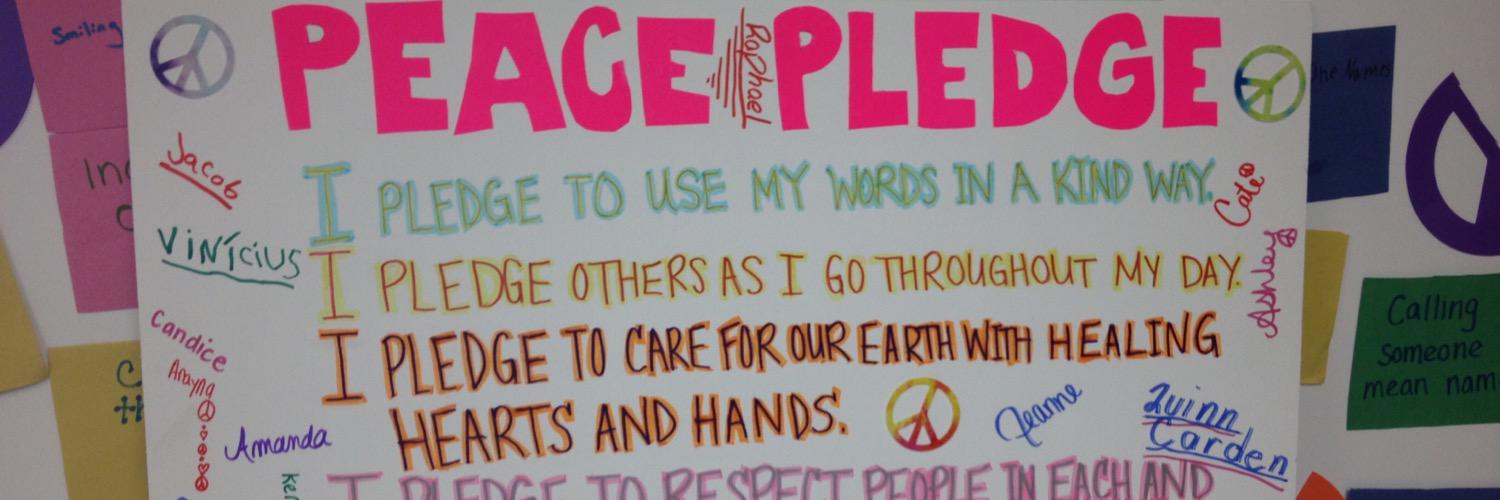 Smiling
PEACE PLEDGE
Raphael
Jacob
I PLEDGE TO USE MY WORDS IN A KIND WAY.
Cate
Vinícius
I PLEDGE OTHERS AS I GO THROUGHOUT MY DAY.
Ashley
Candice
I PLEDGE TO CARE FOR OUR EARTH WITH HEALING
HEARTS AND HANDS.
Amanda
Jeanne
Quinn
Carden
I PLEDGE TO RESPECT PEOPLE IN EACH AND
Calling
someone
mean nam